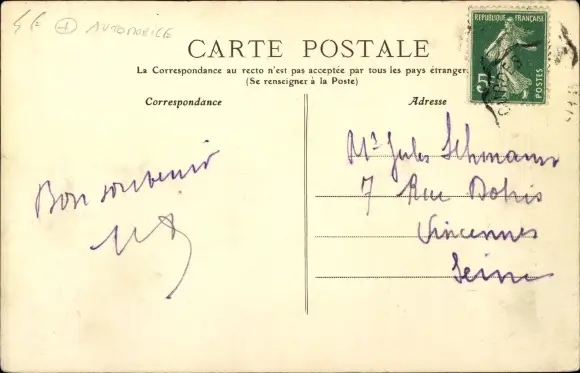 4€ + AUTOMOBILE
CARTE POSTALE
La Correspondance au recto n'est pas acceptée par tous les pays étranger
(Se renseigner à la Poste)
Correspondance
Adresse
REPUBLIQUE FRANÇAISE
5c
POSTES
Bon souvenir
Mr Jules Lehmann
7 Rue
Vincennes
Seine